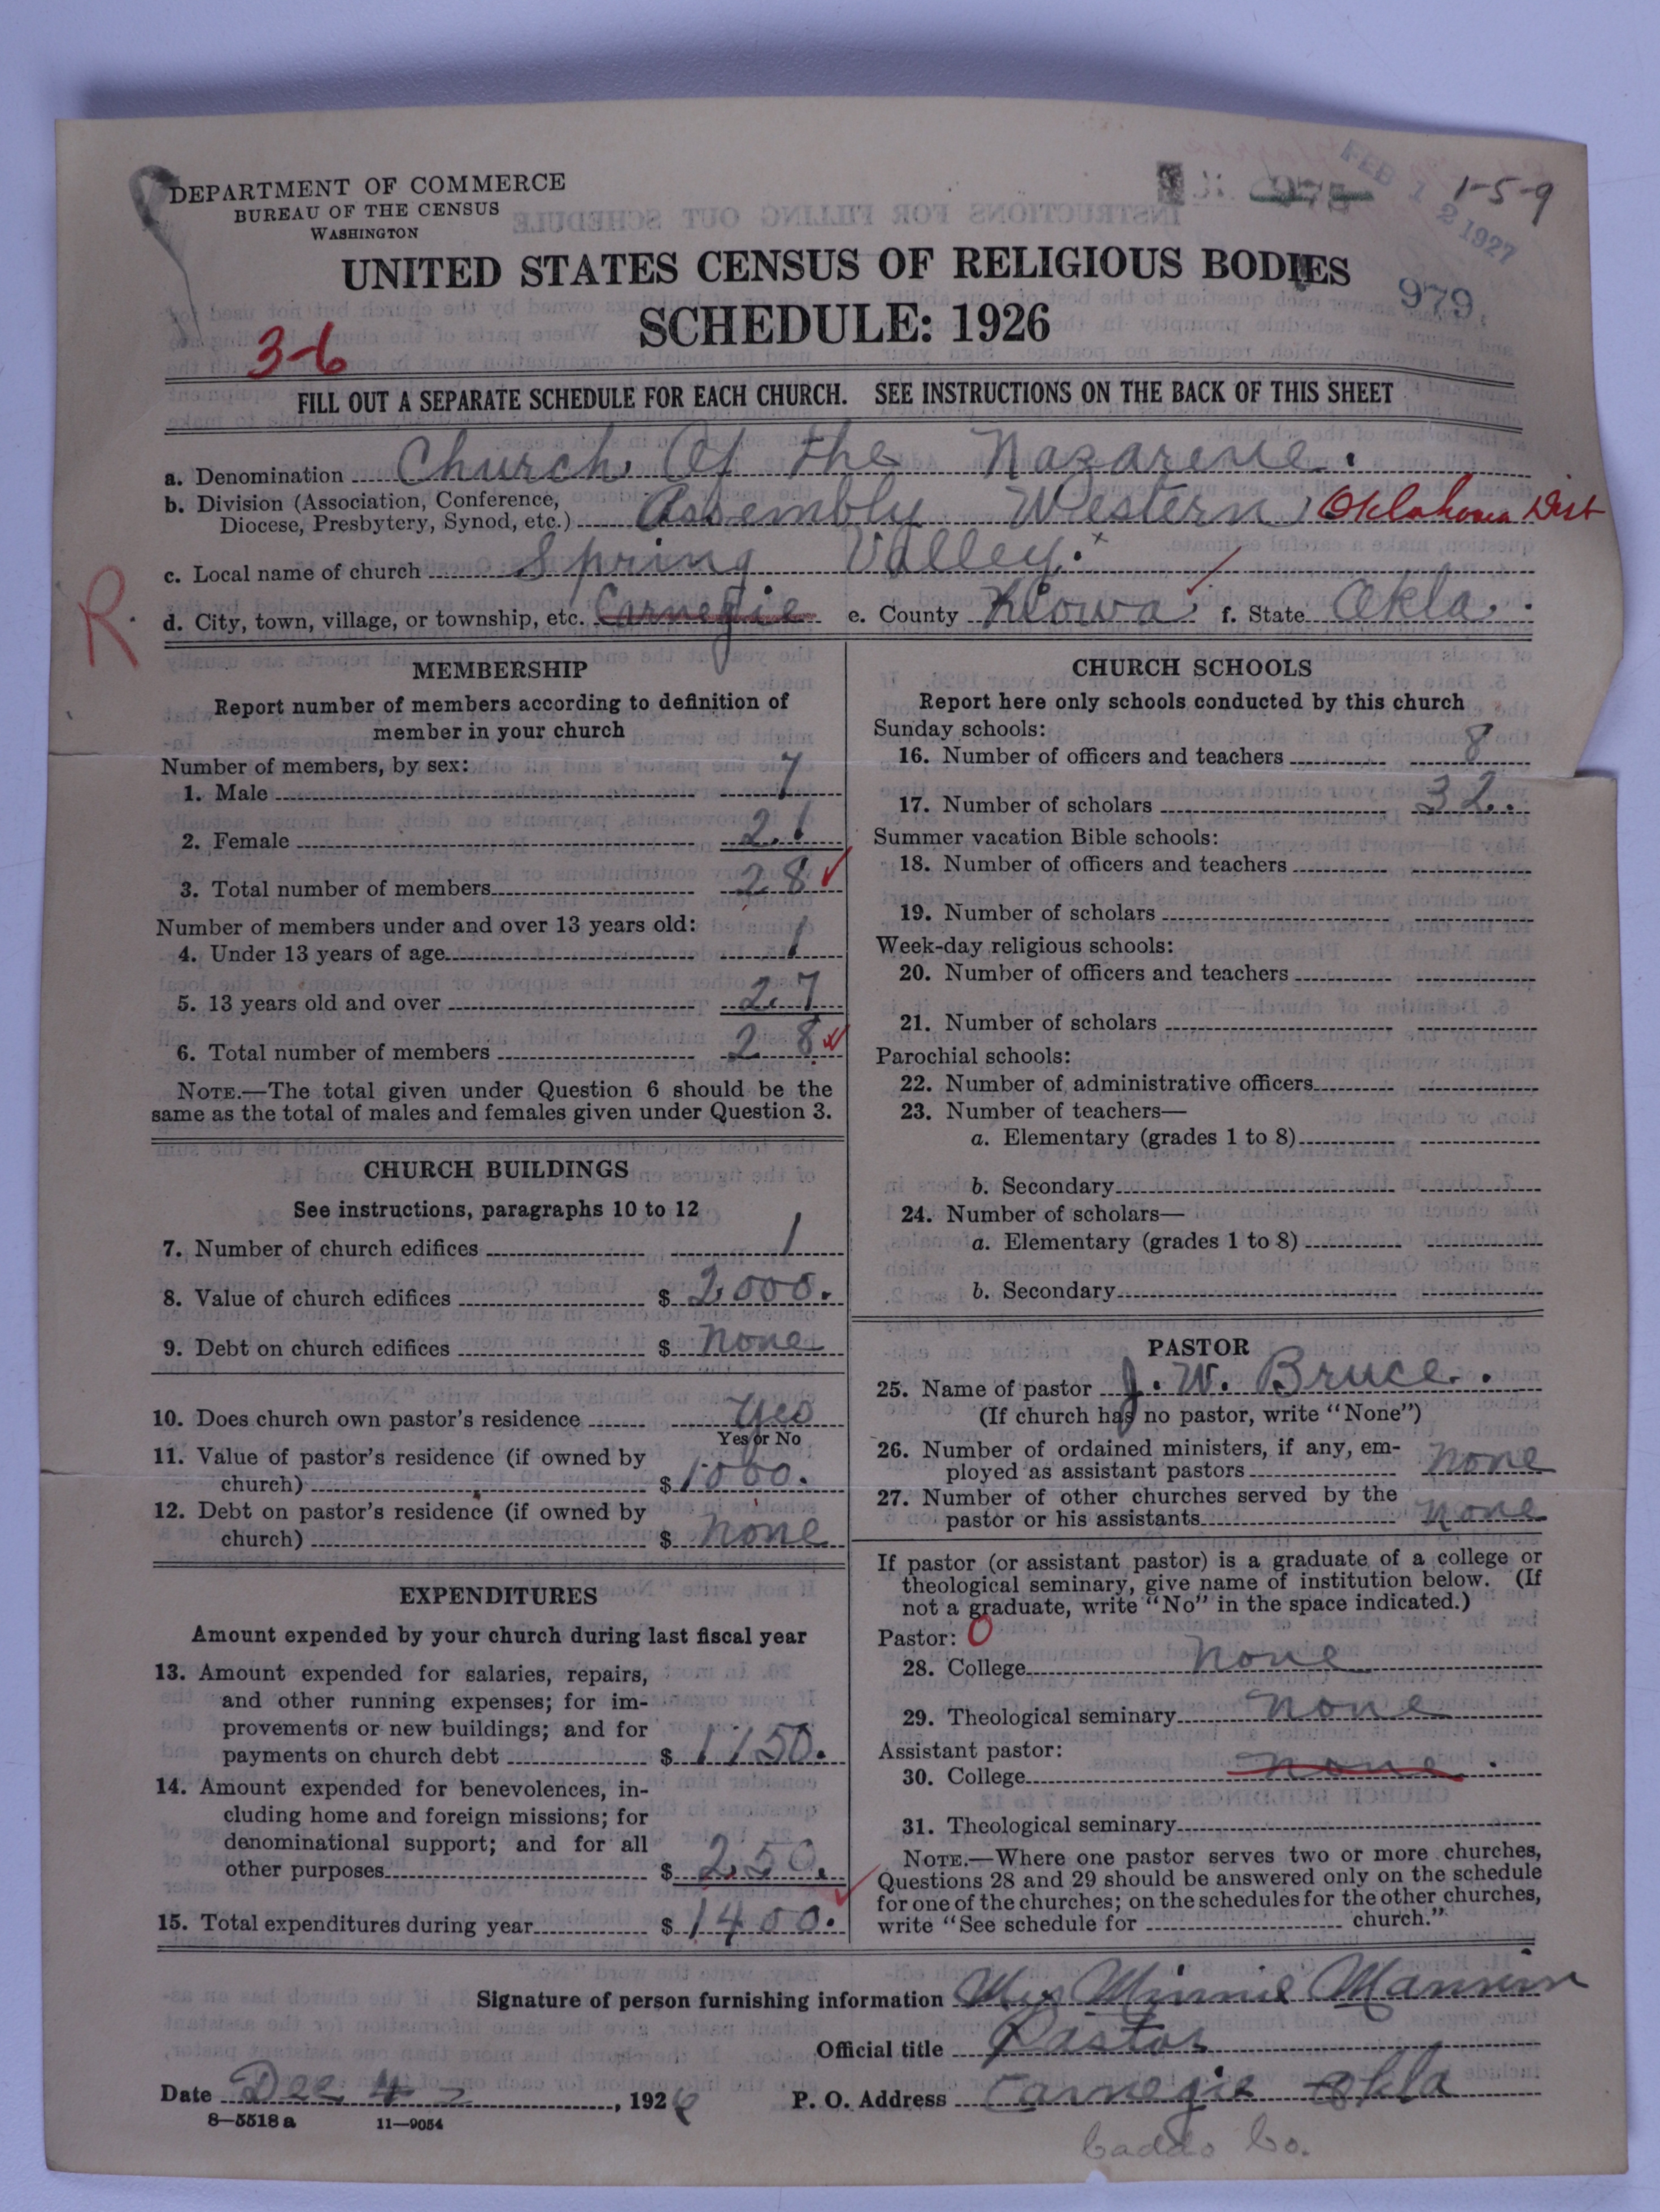 DEPARTMENT OF COMMERCE
BUREAU OF THE CENSUS
WASHINGTON
FEB 12 1927
1-5-9
UNITED STATES CENSUS OF RELIGIOUS BODIES
SCHEDULE: 1926
979
3-6
FILL OUT A SEPARATE SCHEDULE FOR EACH CHURCH. SEE INSTRUCTIONS ON THE BACK OF THIS SHEET
a. Denomination Church Of the Nazarene.
b. Division (Association, Conference,
Diocese, Presbytery, Synod, etc.) Assembly Western Oklahoma Dist
c. Local name of church Spring Valley.
R.
d. City, town, village, or township, etc. Carnegie e. County Kiowa f. State Okla.
MEMBERSHIP
Report number of members according to definition of
member in your church
Number of members, by sex:
1. Male 7
2. Female 21
3. Total number of members 28
Number of members under and over 13 years old:
4. Under 13 years of age 1
5. 13 years old and over 27
6. Total number of members 28
NOTE.—The total given under Question 6 should be the
same as the total of males and females given under Question 3.
CHURCH BUILDINGS
See instructions, paragraphs 10 to 12
7. Number of church edifices 1
8. Value of church edifices $ 2000.
9. Debt on church edifices $ none
10. Does church own pastor's residence yes
Yes or No
11. Value of pastor's residence (if owned by
church) $ 1000.
12. Debt on pastor's residence (if owned by
church) $ none
EXPENDITURES
Amount expended by your church during last fiscal year
13. Amount expended for salaries, repairs,
and other running expenses; for im-
provements or new buildings; and for
payments on church debt $ 1150.
14. Amount expended for benevolences, in-
cluding home and foreign missions; for
denominational support; and for all
other purposes $ 250.
15. Total expenditures during year $ 1400.
CHURCH SCHOOLS
Report here only schools conducted by this church
Sunday schools:
16. Number of officers and teachers 8
17. Number of scholars 32.
Summer vacation Bible schools:
18. Number of officers and teachers
19. Number of scholars
Week-day religious schools:
20. Number of officers and teachers
21. Number of scholars
Parochial schools:
22. Number of administrative officers
23. Number of teachers—
a. Elementary (grades 1 to 8)
b. Secondary
24. Number of scholars—
a. Elementary (grades 1 to 8)
b. Secondary
PASTOR
25. Name of pastor J. W. Bruce.
(If church has no pastor, write "None")
26. Number of ordained ministers, if any, em-
ployed as assistant pastors none
27. Number of other churches served by the
pastor or his assistants none
If pastor (or assistant pastor) is a graduate of a college or
theological seminary, give name of institution below. (If
not a graduate, write "No" in the space indicated.)
Pastor: 0
28. College none
29. Theological seminary none
Assistant pastor:
30. College none.
31. Theological seminary
NOTE.—Where one pastor serves two or more churches,
Questions 28 and 29 should be answered only on the schedule
for one of the churches; on the schedules for the other churches,
write "See schedule for church."
Signature of person furnishing information Minnie
Official title Pastor
Date Dec 4, 1926 P. O. Address Carnegie Okla
8—5518 a 11—9054
Caddo Co.